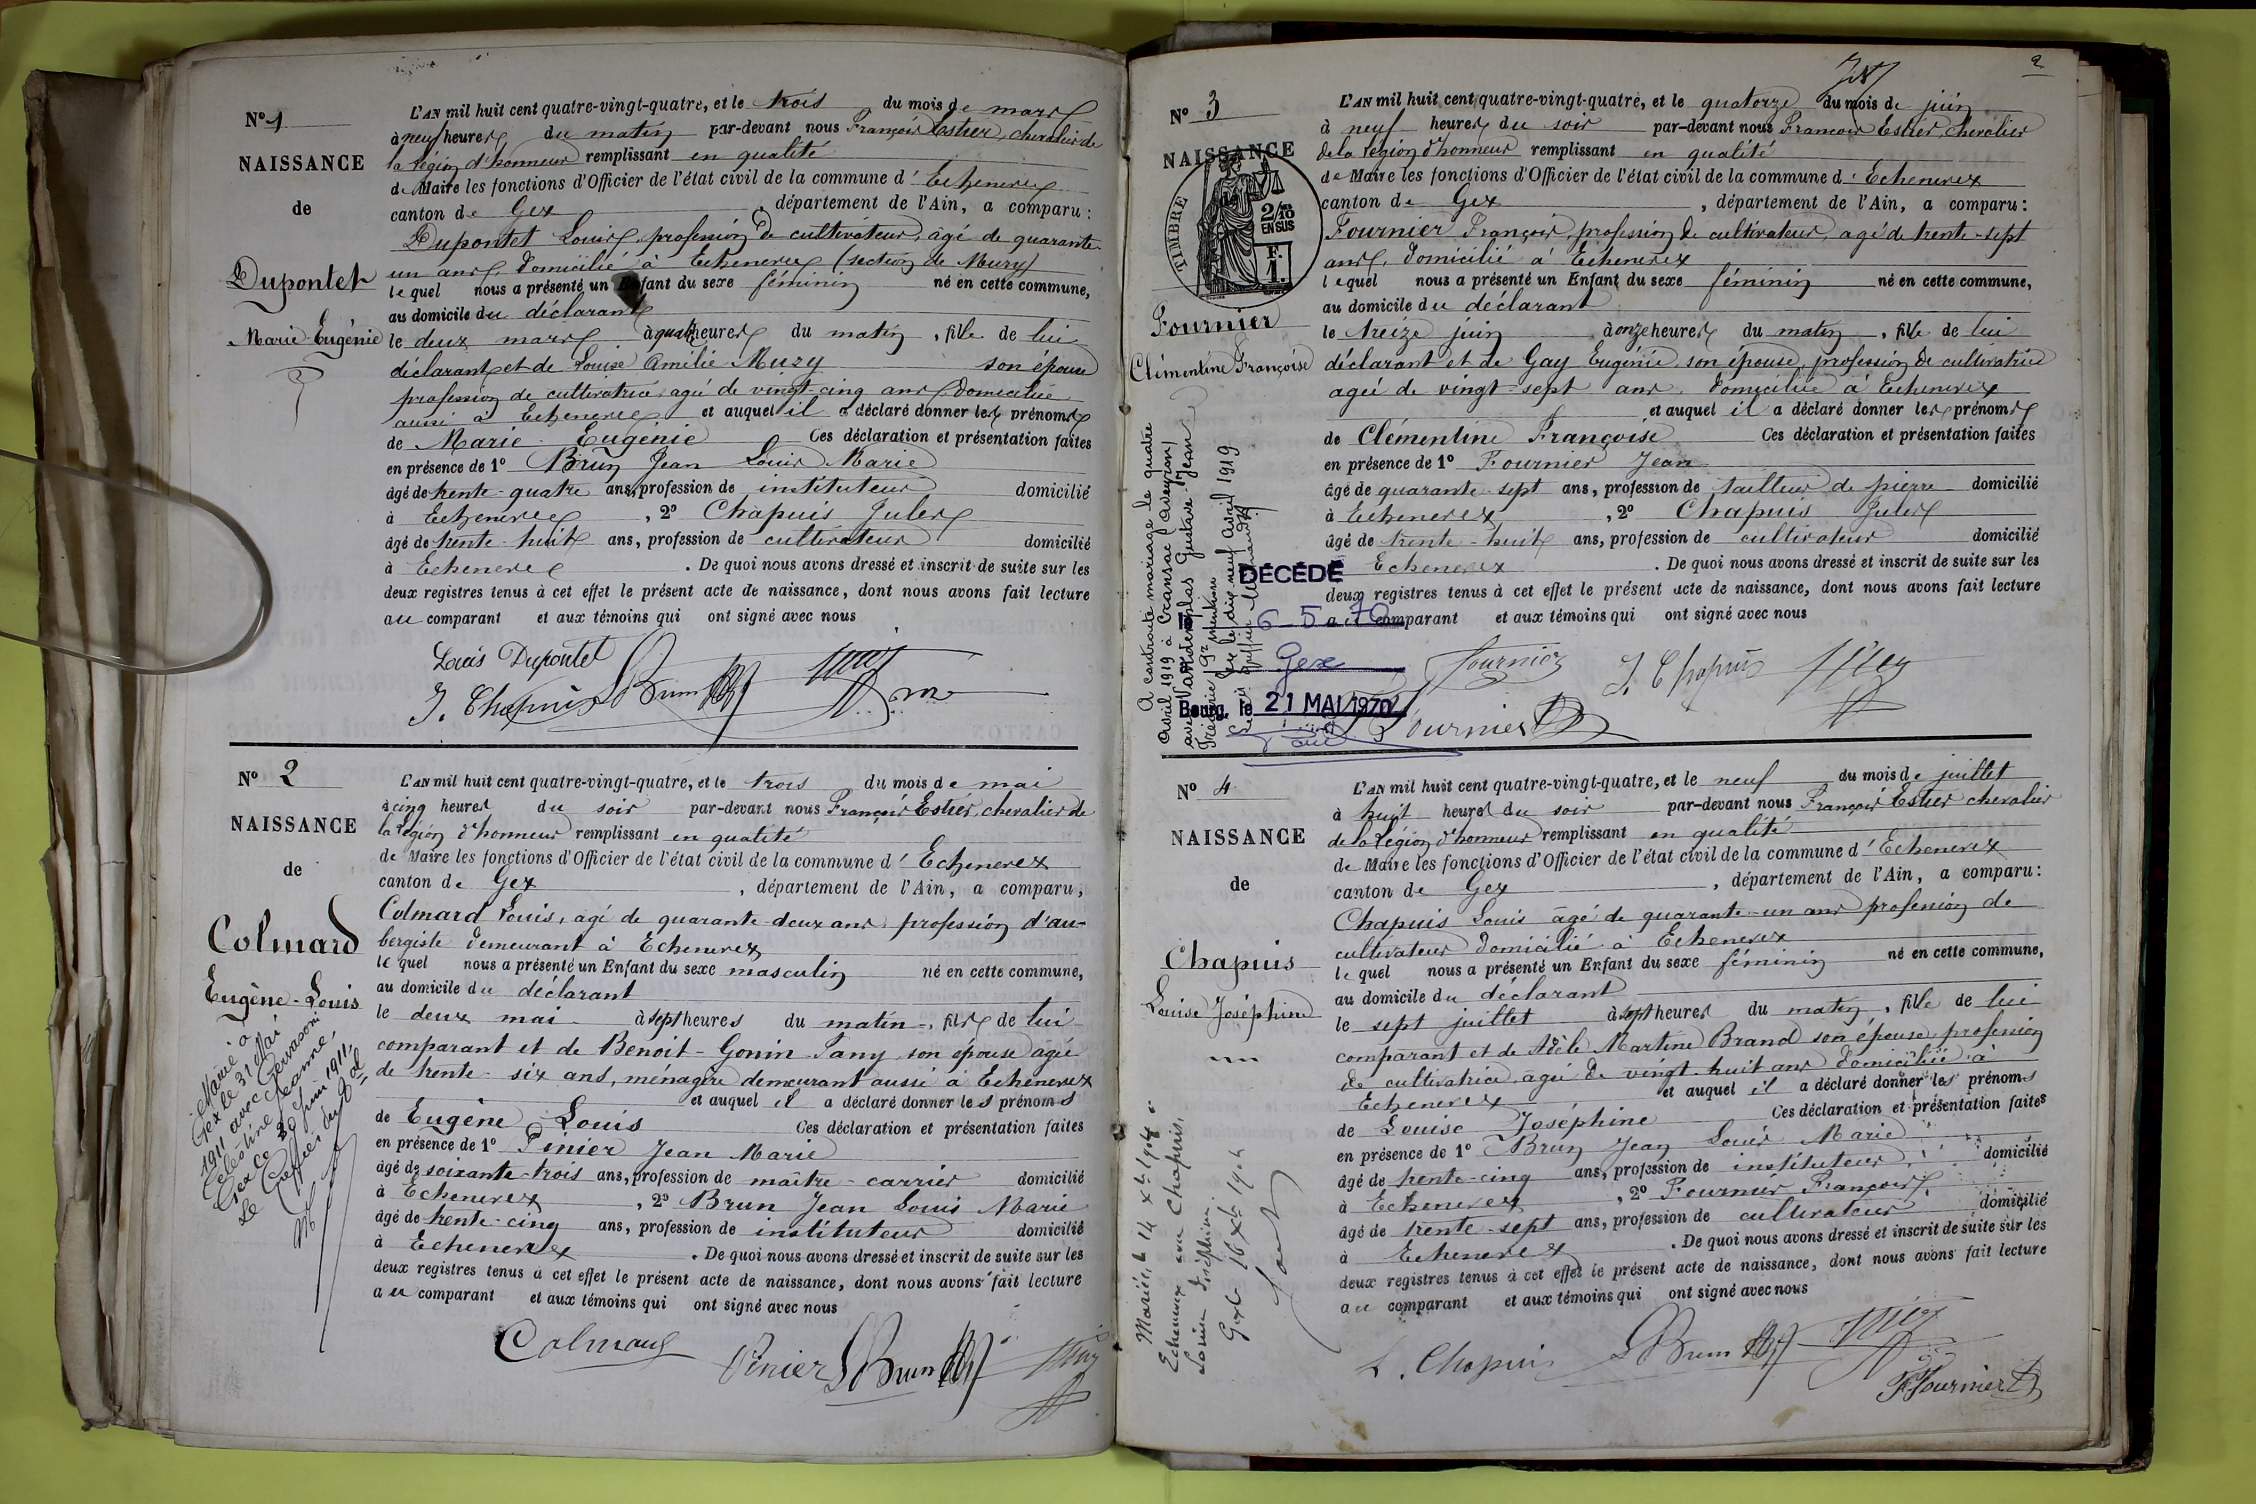 N° 1
NAISSANCE
de
Dupontet
Marie Eugénie
L'AN mil huit cent quatre-vingt-quatre, et le trois du mois de mars
à neuf heures du matin par-devant nous François Estier, chevalier de
la légion d'honneur remplissant en qualité
de Maire les fonctions d'Officier de l'état civil de la commune d'Echenevex
canton de Gex, département de l'Ain, a comparu :
Dupontet Louis, profession de cultivateur, âgé de quarante-
un ans, domicilié à Echenevex (section de Mury)
lequel nous a présenté un Enfant du sexe féminin né en cette commune,
au domicile du déclarant
le deux mars à quatre heures du matin, fille de lui
déclarant et de Louise Amélie Mury son épouse
profession de cultivatrice agé de vingt-cinq ans domiciliée
aussi à Echenevex et auquel il a déclaré donner les prénoms
de Marie Eugénie Ces déclaration et présentation faites
en présence de 1° Brun Jean Louis Marie
âgé de trente-quatre ans, profession de instituteur domicilié
à Echenevex, 2° Chapuis Jules
âgé de trente-huit ans, profession de cultivateur domicilié
à Echenevex. De quoi nous avons dressé et inscrit de suite sur les
deux registres tenus à cet effet le présent acte de naissance, dont nous avons fait lecture
au comparant et aux témoins qui ont signé avec nous
Louis Dupontet
J. Chapuis LBrun
N° 2
NAISSANCE
de
Colmard
Eugène-Louis
Marié à
Gex le 31 Mai
1911 avec Gervasoni
Celestine Jeanne,
Gex ce Juin 1911,
Le Greffier
L'AN mil huit cent quatre-vingt-quatre, et le trois du mois de mai
à cinq heures du soir par-devant nous François Estier, chevalier de
la légion d'honneur remplissant en qualité
de Maire les fonctions d'Officier de l'état civil de la commune d'Echenevex
canton de Gex, département de l'Ain, a comparu,
Colmard Louis, agé de quarante-deux ans profession d'au-
bergiste demeurant à Echenevex
lequel nous a présenté un Enfant du sexe masculin né en cette commune,
au domicile du déclarant
le deux mai à sept heures du matin, fils de lui
comparant et de Benoit-Gonin Fany son épouse agée
de trente-six ans, ménagère demeurant aussi à Echenevex
et auquel il a déclaré donner les prénoms
de Eugène Louis Ces déclaration et présentation faites
en présence de 1° Pinier Jean Marie
âgé de soixante-trois ans, profession de maître-carrier domicilié
à Echenevex, 2° Brun Jean Louis Marie
âgé de trente-cinq ans, profession de instituteur domicilié
à Echenevex. De quoi nous avons dressé et inscrit de suite sur les
deux registres tenus à cet effet le présent acte de naissance, dont nous avons fait lecture
au comparant et aux témoins qui ont signé avec nous
Colmard Pinier LBrun
2
N° 3
NAISSANCE
TIMBRE
2/10
EN SUS
F.
1.
Fournier
Clémentine Françoise
A contracté mariage le quatre
avril 1919 à Cransac (Aveyron)
avec Gustave Jean
Frédéric
le dix neuf avril 1919
DÉCÉDÉ
6-5-70
Gex
Bourg, le 21 MAI 1970
L'AN mil huit cent quatre-vingt-quatre, et le quatorze du mois de juin
à neuf heures du soir par-devant nous François Estier chevalier
de la légion d'honneur remplissant en qualité
de Maire les fonctions d'Officier de l'état civil de la commune d'Echenevex
canton de Gex, département de l'Ain, a comparu :
Fournier François, profession de cultivateur, agé de trente-sept
ans, domicilié à Echenevex
lequel nous a présenté un Enfant du sexe féminin né en cette commune,
au domicile du déclarant
le treize juin à onze heures du matin, fille de lui
déclarant et de Gay Eugénie son épouse, profession de cultivatrice
agée de vingt-sept ans domiciliée à Echenevex
et auquel il a déclaré donner les prénoms
de Clémentine Françoise Ces déclaration et présentation faites
en présence de 1° Fournier Jean
âgé de quarante-sept ans, profession de tailleur de pierre domicilié
à Echenevex, 2° Chapuis Jules
âgé de trente-huit ans, profession de cultivateur domicilié
Echenevex. De quoi nous avons dressé et inscrit de suite sur les
deux registres tenus à cet effet le présent acte de naissance, dont nous avons fait lecture
au comparant et aux témoins qui ont signé avec nous
Fournier J. Chapuis
Fournier
N° 4
NAISSANCE
de
Chapuis
Louise Joséphine
Mariée le 14 Xbre 1904 à
Echenevex avec Chapuis
Louis Joséphin.
Gex le 16 Xbre 1904
L'AN mil huit cent quatre-vingt-quatre, et le neuf du mois de juillet
à huit heures du soir par-devant nous François Estier chevalier
de la légion d'honneur remplissant en qualité
de Maire les fonctions d'Officier de l'état civil de la commune d'Echenevex
canton de Gex, département de l'Ain, a comparu :
Chapuis Louis âgé de quarante-un ans profession de
cultivateur domicilié à Echenevex
lequel nous a présenté un Enfant du sexe féminin né en cette commune,
au domicile du déclarant
le sept juillet à sept heures du matin, fille de lui
comparant et de Adèle Martine Brand son épouse profession
de cultivatrice agée de vingt-huit ans domiciliée à
Echenevex et auquel il a déclaré donner les prénoms
de Louise Joséphine Ces déclaration et présentation faites
en présence de 1° Brun Jean Louis Marie
âgé de trente-cinq ans, profession de instituteur domicilié
à Echenevex, 2° Fournier François
âgé de trente-sept ans, profession de cultivateur domicilié
à Echenevex. De quoi nous avons dressé et inscrit de suite sur les
deux registres tenus à cet effet le présent acte de naissance, dont nous avons fait lecture
au comparant et aux témoins qui ont signé avec nous
L. Chapuis LBrun
F Fournier